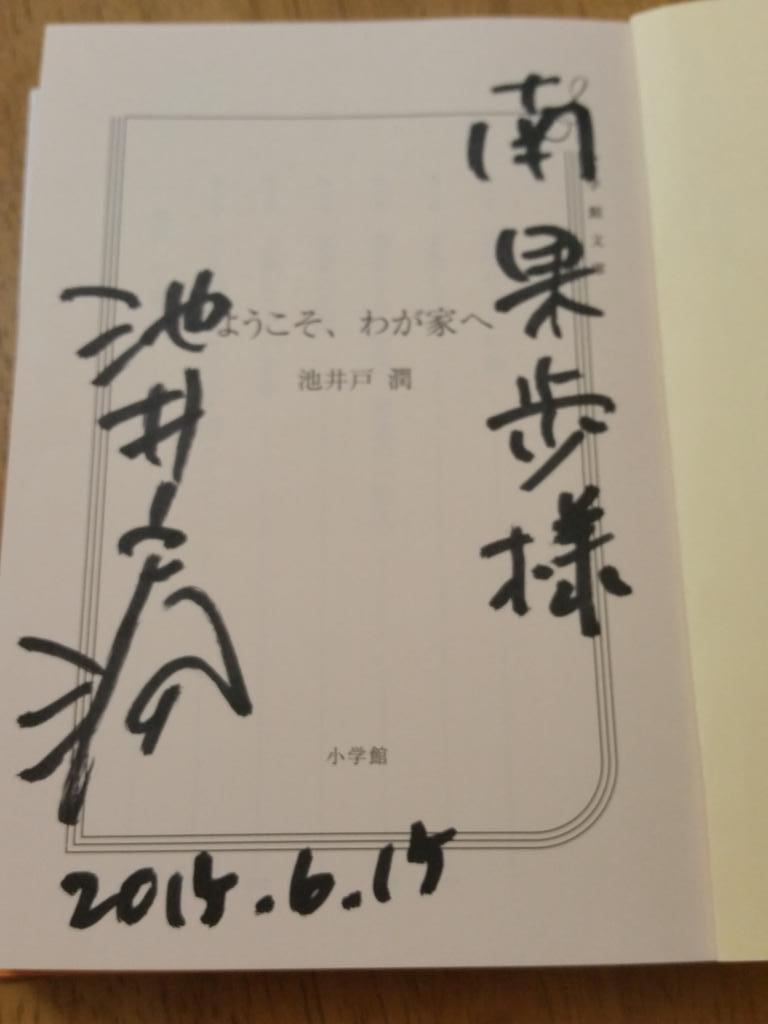 南果歩様
小学館文庫
ようこそ、わが家へ
池井戸 潤
池井戸潤
小学館
2015.6.15